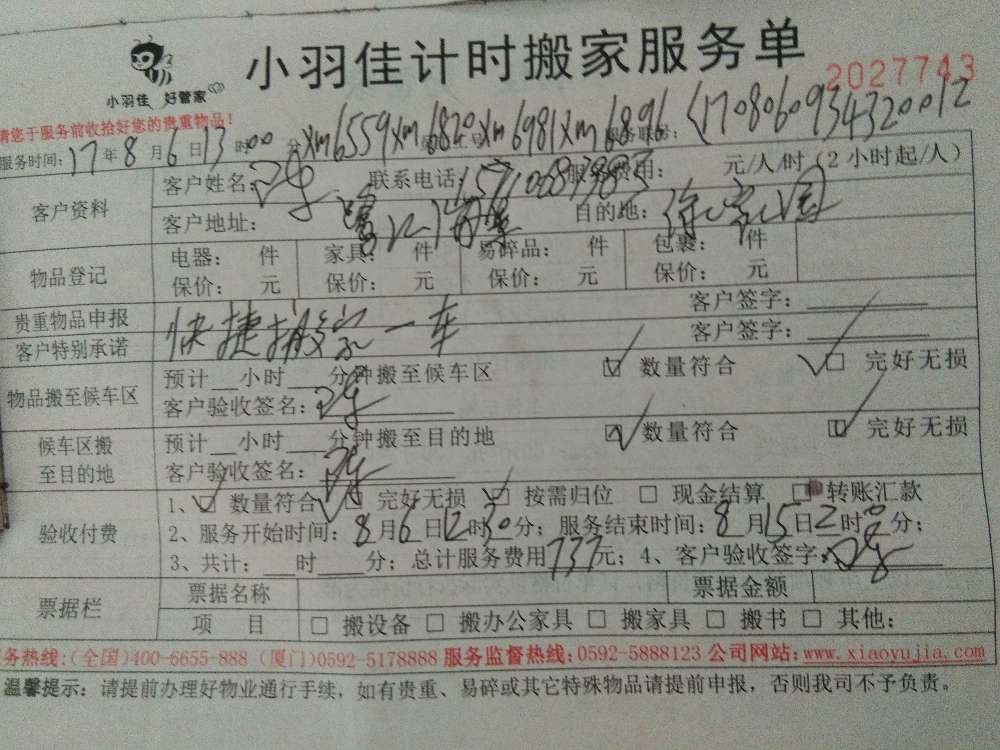 小羽佳计时搬家服务单
小羽佳 好管家
2027743
请您于服务前收拾好您的贵重物品！
xm6559xm6820xm6981xm6896 (1708060934320012
服务时间：17年8月6日13时00分
客户资料 客户姓名： 联系电话： 服务费用： 元/人/时（2小时起/人）
客户地址： 目的地：
物品登记 电器： 件 家具： 件 易碎品： 件 包裹： 件
保价： 元 保价： 元 保价： 元 保价： 元
贵重物品申报 客户签字：
快捷搬家一车
客户特别承诺 客户签字：
物品搬至候车区 预计__小时___分钟搬至候车区 ☑ 数量符合 ☑ 完好无损
客户验收签名：
候车区搬至目的地 预计__小时___分钟搬至目的地 ☑ 数量符合 ☑ 完好无损
客户验收签名：
验收付费 1、☑ 数量符合 ☑ 完好无损 ☑ 按需归位 □ 现金结算 □ 转账汇款
2、服务开始时间：8月6日12时30分；服务结束时间：8月15日2时分；
3、共计：__时____分；总计服务费用737元；4、客户验收签字：
票据栏 票据名称 票据金额
项 目 □ 搬设备 □ 搬办公家具 □ 搬家具 □ 搬书 □ 其他：
务热线:(全国)400-6655-888 (厦门)0592-5178888 服务监督热线:0592-5888123 公司网站:www.xiaoyujia.com
温馨提示：请提前办理好物业通行手续，如有贵重、易碎或其它特殊物品请提前申报，否则我司不予负责。